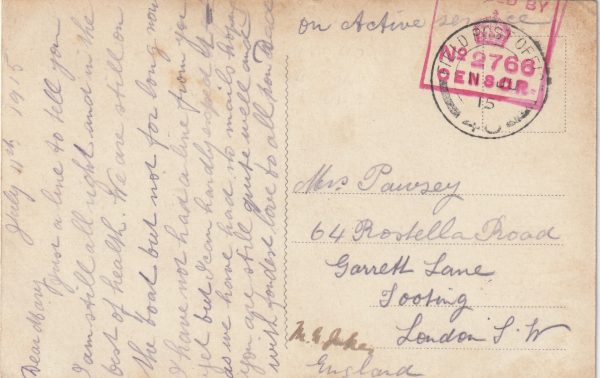 July 11th 1915
Dear Mary
Just a line to tell you
I am still all right and in the
best of health. We are still on
the boat but not for long now
I have not had a line from you
yet but I can hardly expect it
as we have had no mails hoping
you are still quite well and
with fondest love to all from
on Active service
BY
No 2766
CENSOR.
FIELD POST OFFICE
15
40
Mrs Pawsey
64 Rostella Road
Garrett Lane
Tooting
London S.W
England